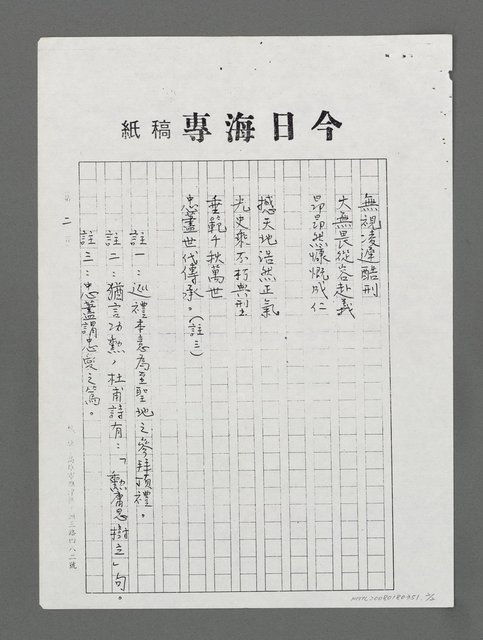 今日海專 稿紙
無視凌遲酷刑
大無畏從容赴義
昂昂然慷慨成仁
撼天地浩然正氣
光史乘不朽典型
垂範千秋萬世
忠藎世代傳承。（註三）
註一：巡禮本意為至聖地之參拜頂禮。
註二：猶言功勲，杜甫詩有：「勲庸思樹立」句。
註三：忠藎謂忠愛之篤。
第二頁
三路四八二號